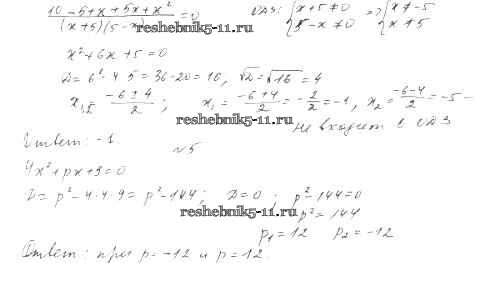 (10 - 5 + x + 5x + x²)/((x+5)(5-x)) = 0 ОДЗ: {x+5≠0 5-x≠0 => {x≠-5 x≠5
reshebnik5-11.ru
x²+6x+5=0
D = 6²-4·5=36-20=16, √D=√16=4
x₁,₂ = (-6±4)/2; x₁ = (-6+4)/2 = -2/2 = -1, x₂ = (-6-4)/2 = -5 -
reshebnik5-11.ru не входит в ОДЗ
Ответ: -1
№5
4x²+px+9=0
D = p²-4·4·9 = p²-144; D=0; p²-144=0
reshebnik5-11.ru p²=144
p₁=12 p₂=-12
Ответ: при p=-12 и p=12.